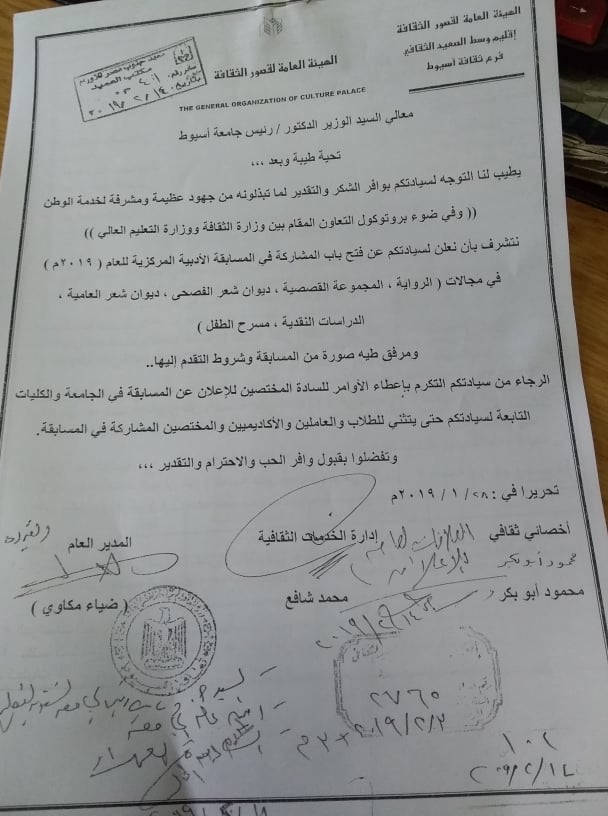 الهيئة العامة لقصور الثقافة
إقليم وسط الصعيد الثقافي
فرع ثقافة أسيوط
الهيئة العامة لقصور الثقافة
THE GENERAL ORGANIZATION OF CULTURE PALACE
معالي السيد الوزير الدكتور / رئيس جامعة أسيوط
تحية طيبة وبعد ،،،
يطيب لنا التوجه لسيادتكم بوافر الشكر والتقدير لما تبذلونه من جهود عظيمة ومشرفة لخدمة الوطن
(( وفي ضوء بروتوكول التعاون المقام بين وزارة الثقافة ووزارة التعليم العالي ))
نتشرف بأن نعلن لسيادتكم عن فتح باب المشاركة في المسابقة الأدبية المركزية للعام ( ٢٠١٩م )
في مجالات ( الرواية ، المجموعة القصصية ، ديوان شعر الفصحى ، ديوان شعر العامية ،
الدراسات النقدية ، مسرح الطفل )
ومرفق طيه صورة من المسابقة وشروط التقدم إليها..
الرجاء من سيادتكم التكرم بإعطاء الأوامر للسادة المختصين للإعلان عن المسابقة في الجامعة والكليات
التابعة لسيادتكم حتى يتثنى للطلاب والعاملين والأكاديميين والمختصين المشاركة في المسابقة.
وتفضلوا بقبول وافر الحب والاحترام والتقدير ،،،
تحريرا في : ٢٨ / ١ / ٢٠١٩م
أخصائي ثقافي
إدارة الخدمات الثقافية
المدير العام
محمود أبو بكر
محمود أبو بكر
محمد شافع
( ضياء مكاوي )
٢٧٦٥
٢٠١٩/٢/٣
١٠٢